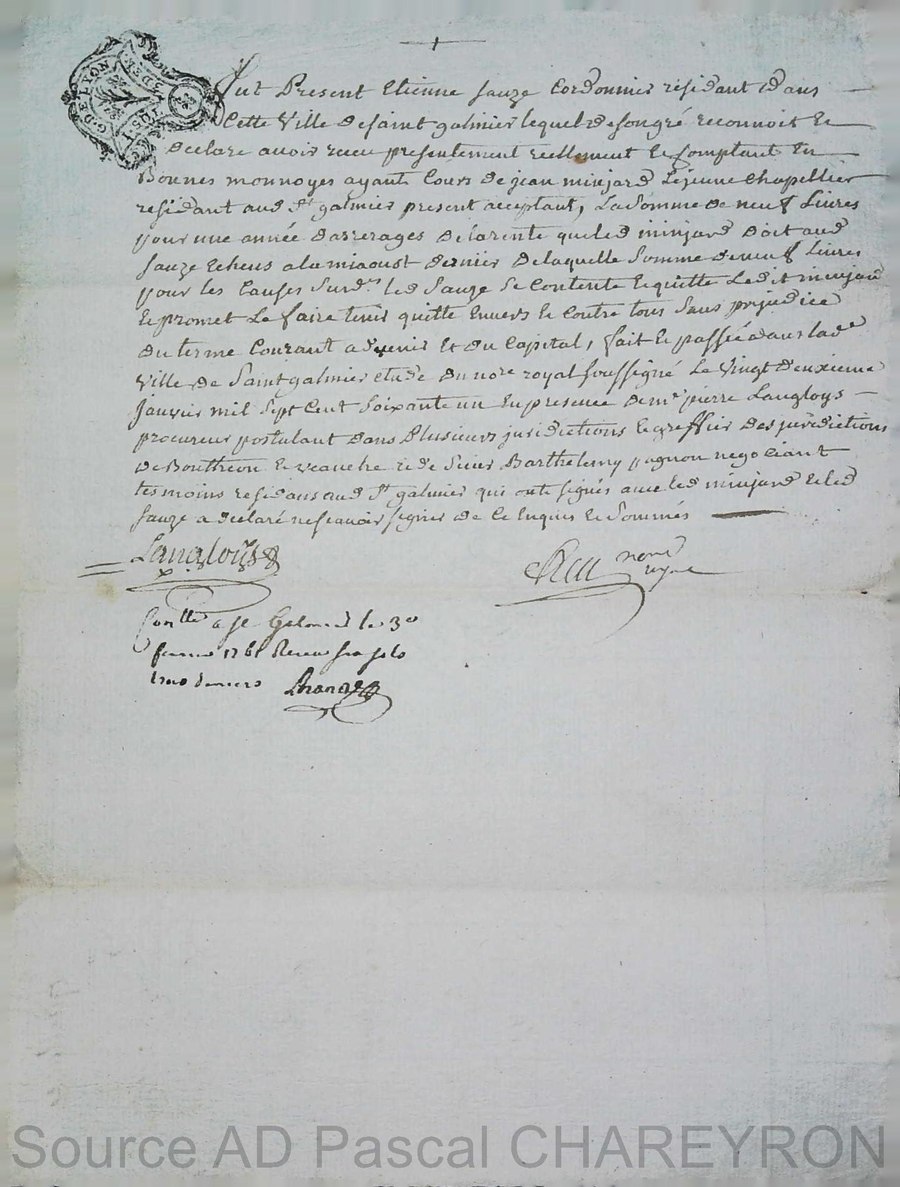 G. DE LYON
Fut Present Etienne sauze Cordonnier résidant dans
Cette Ville de saint galmier lequel de son gré reconnoit Et
Declare avoir receu presentement réellement Et Comptant En
Bonnes monnoyes ayant Cours de jean minjard Lejeune Chapellier
résidant aud St galmier present acceptant, La somme de neuf Livres
pour une année darrerages de la rente que led minjard doit aud
sauze Echeus a la miaoust dernier de laquelle Somme de neuf Livres
pour les Causes Surd.s led Sauze Se Contente Et quitte Ledit minjard
Et promet Le faire tenir quitte Envers Et Contre tous Sans prejudice
du terme Courant a devenir Et du Capital, fait Et passé dans lad.e
Ville de Saint galmier etude du no.re royal soussigné Le Vingt deuxieme
Janvier mil Sept Cent Soixante un En presence de m.e pierre Langloys
procureur postulant dans Plusieurs juridictions Et greffier des juridictions
de Bouthéon Et veauche Et de Sieur Barthelemy pagnon negociant
temoins residans aud St galmier qui ont signés avec led minjard Et led
Sauze a declaré ne scavoir signer de Ce Enquis Et Sommés
Langloys
no.re
Con.lle a St Galmier le 3e
1761 Receu
trois deniers
Source AD Pascal CHAREYRON